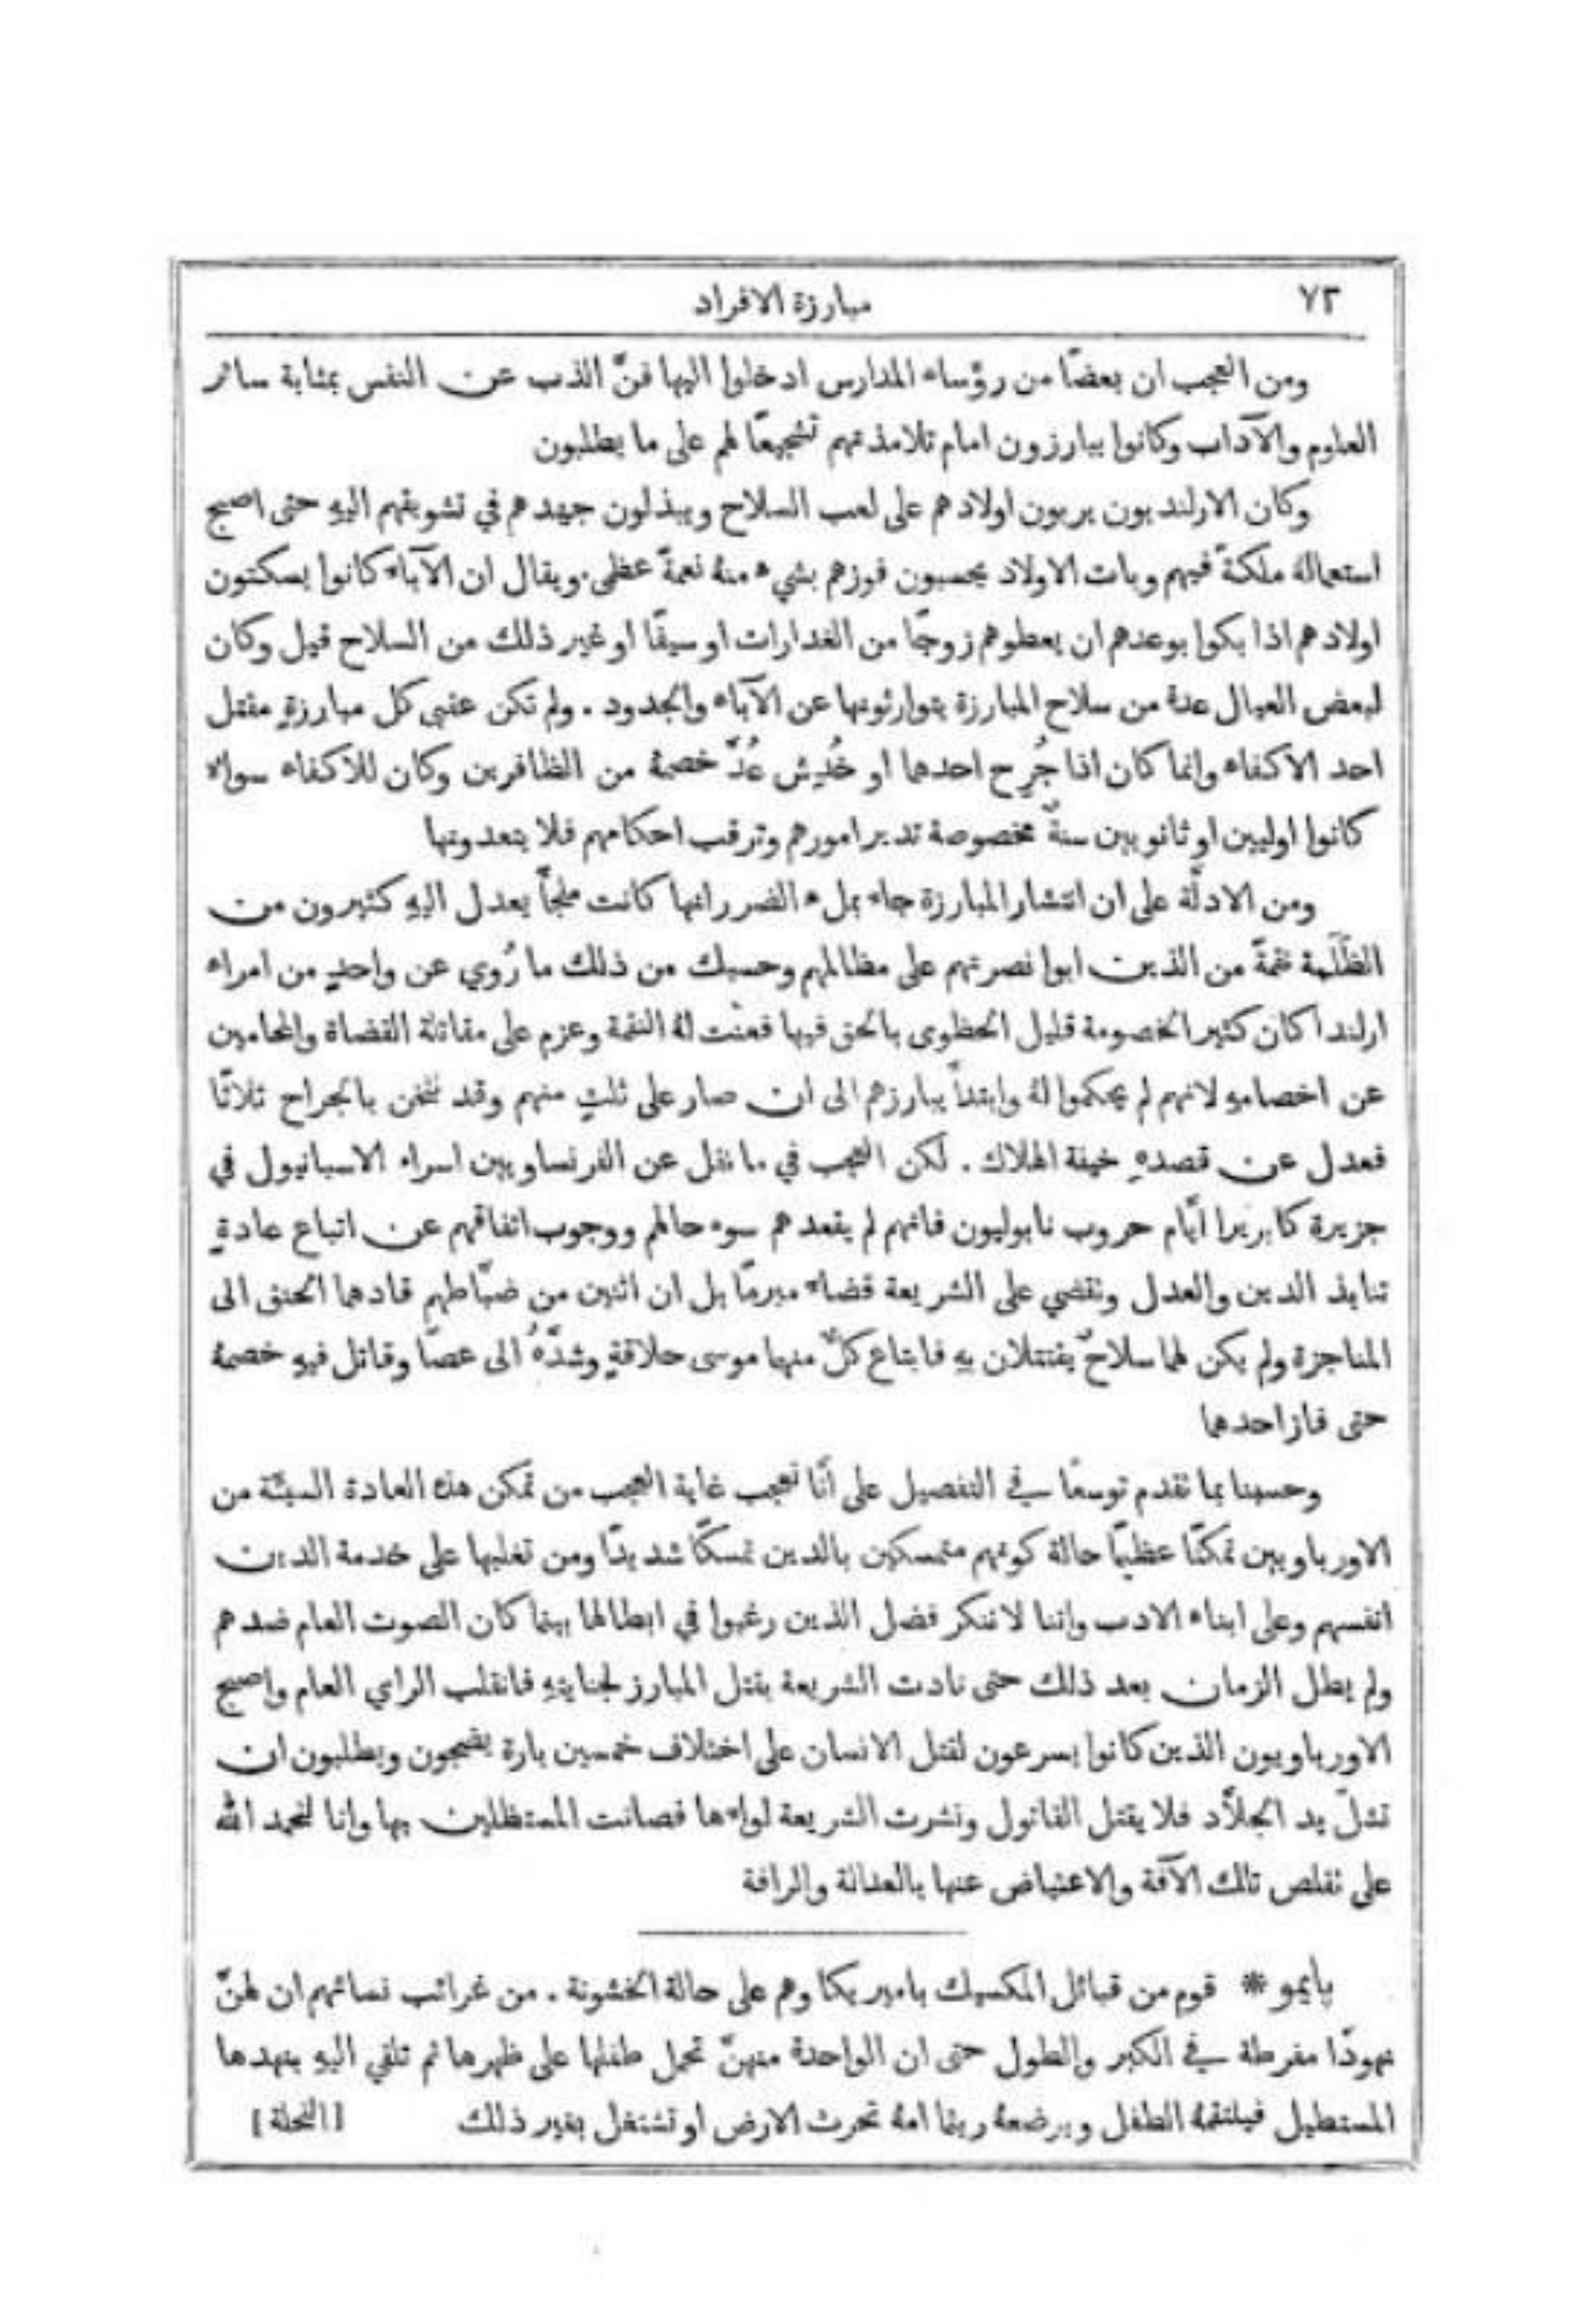 ٧٢
مبارزة الافراد
ومن العجب ان بعضًا من رؤساء المدارس ادخلوا اليها فنّ الذب عن النفس بمثابة سائر
العلوم والآداب وكانوا يبارزون امام تلامذتهم تشجيعًا لهم على ما يطلبون
وكان الارلنديون يربون اولادهم على لعب السلاح ويبذلون جهدهم في تشويقهم اليهِ حتى اصبح
استعمالهُ ملكةً فيهم وبات الاولاد يحسبون فوزهم بشيء منهُ نعمةً عظمى. ويقال ان الآباء كانوا يسكتون
اولادهم اذا بكوا بوعدهم ان يعطوهم زوجًا من الغدارات او سيفًا او غير ذلك من السلاح قيل وكان
لبعض العيال عدة من سلاح المبارزة يتوارثونها عن الآباء والجدود . ولم تكن عقبى كل مبارزةٍ مقتل
احد الاكفاء وانما كان اذا جُرِح احدهما او خُدِش عُدَّ خصمهُ من الظافرين وكان للاكفاء سواء
كانوا اوليين او ثانويين سنةٌ مخصوصة تدبر امورهم وترقب احكامهم فلا يتعدونها
ومن الادلَّة على ان انتشار المبارزة جاء بملء الضرر انها كانت ملجأً يعدل اليهِ كثيرون من
الظَلَمة نقمةً من الذين ابوا نصرتهم على مظالمهم وحسبك من ذلك ما رُوي عن واحدٍ من امراء
ارلندا كان كثير الخصومة قليل الحظوى بالحق فيها فعنَّت لهُ النقمة وعزم على مقاتلة القضاة والمحامين
عن اخصامهِ لانهم لم يحكموا لهُ وابتدأ يبارزهم الى ان صار على ثلثٍ منهم وقد نُخن بالجراح ثلاثًا
فعدل عن قصدهِ خيفة الهلاك . لكن العجب في ما نقل عن الفرنساويين اسراء الاسبانيول في
جزيرة كابريرا أيّام حروب نابوليون فانهم لم يقعدهم سوء حالهم ووجوب اتفاقهم عن اتباع عادةٍ
تنابذ الدين والعدل وتقضي على الشريعة قضاء مبرمًا بل ان اثنين من ضبّاطهم قادهما الحنق الى
المناجزة ولم يكن لهما سلاحٌ يقتتلان بهِ فابتاع كلٌّ منهما موسى حلاقةٍ وشدَّهُ الى عصًا وقاتل فيهِ خصمهُ
حتى فاز احدهما
وحسبنا بما تقدم توسعًا في التفصيل على أنّا نعجب غاية العجب من تمكن هذه العادة السيئة من
الاورباويين تمكنًا عظيمًا حالة كونهم متمسكين بالدين تمسكًا شديدًا ومن تغلبها على خدمة الدين
انفسهم وعلى ابناء الادب واننا لا ننكر فضل الذين رغبوا في ابطالها بينما كان الصوت العام ضدهم
ولم يطل الزمان بعد ذلك حتى نادت الشريعة بقتل المبارز لجنايتهِ فانقلب الراي العام واصبح
الاورباويون الذين كانوا يسرعون لقتل الانسان على اختلاف خمسين بارة يضجون ويطلبون ان
تشلّ يد الجلاَّد فلا يقتل القاتول ونشرت الشريعة لواءها فصانت المستظلين بها وانا لنحمد الله
على تقلص تلك الآفة والاعتياض عنها بالعدالة والرافة
پايمو * قوم من قبائل المكسيك باميريكا وهم على حالة الخشونة . من غرائب نسائهم ان لهنّ
نهودًا مفرطة في الكبر والطول حتى ان الواحدة منهنّ تحمل طفلها على ظهرها ثم تلقي اليهِ بنهدها
المستطيل فيلتقمهُ الطفل ويرضعهُ ريثما امهُ تحرث الارض او تشتغل بغير ذلك [النحلة]